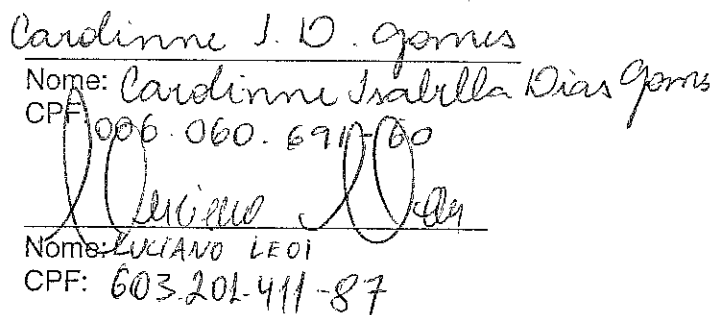 Cardinne I. D. Gomes
Nome: Cardinne Isabella Dias Gomes
CPF: 006.060.691-60
Luciano
Nome: LUCIANO LEOI
CPF: 603.201.411-87